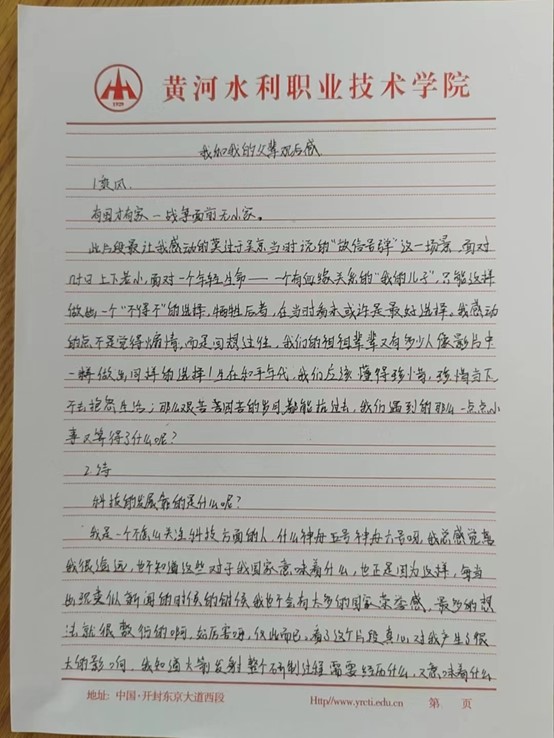 1929
黄河水利职业技术学院
我和我的父辈观后感
1乘风
有国才有家—战争面前无小家。
此片段最让我感动的莫过于吴京当时说的“放信号弹”这一场景，面对
村口上下老小，面对一个年轻生命——一个有血缘关系的“我的儿子”，只能这样
做出一个“不得不”的选择，牺牲后者，在当时看来或许是最好选择。我感动
的点不是觉得煽情，而是回想过往，我们的祖祖辈辈又有多少人像影片中
一样做出同样的选择！生在和平年代，我们应该懂得珍惜，珍惜当下
不去抱怨生活；那么艰苦困苦的岁月都能抗过去，我们遇到的那么一点点小
事又算得了什么呢？
2诗
科技的发展靠的是什么呢？
我是一个不怎么关注科技方面的人，什么神舟五号神舟六号呀，我总感觉离
我很遥远，也不知道这些对于我国家意味着什么，也正是因为这样，每当
出现类似新闻的时候的时候我也不会有太多的国家荣誉感，最多的想
法就很敷衍的啊，好厉害呀，仅此而已，看了这个片段真的对我产生了很
大的影响，我知道火箭发射整个研制过程需要经历什么，又意味着什么
地址：中国·开封东京大道西段
Http//www.yrcti.edu.cn
第 页